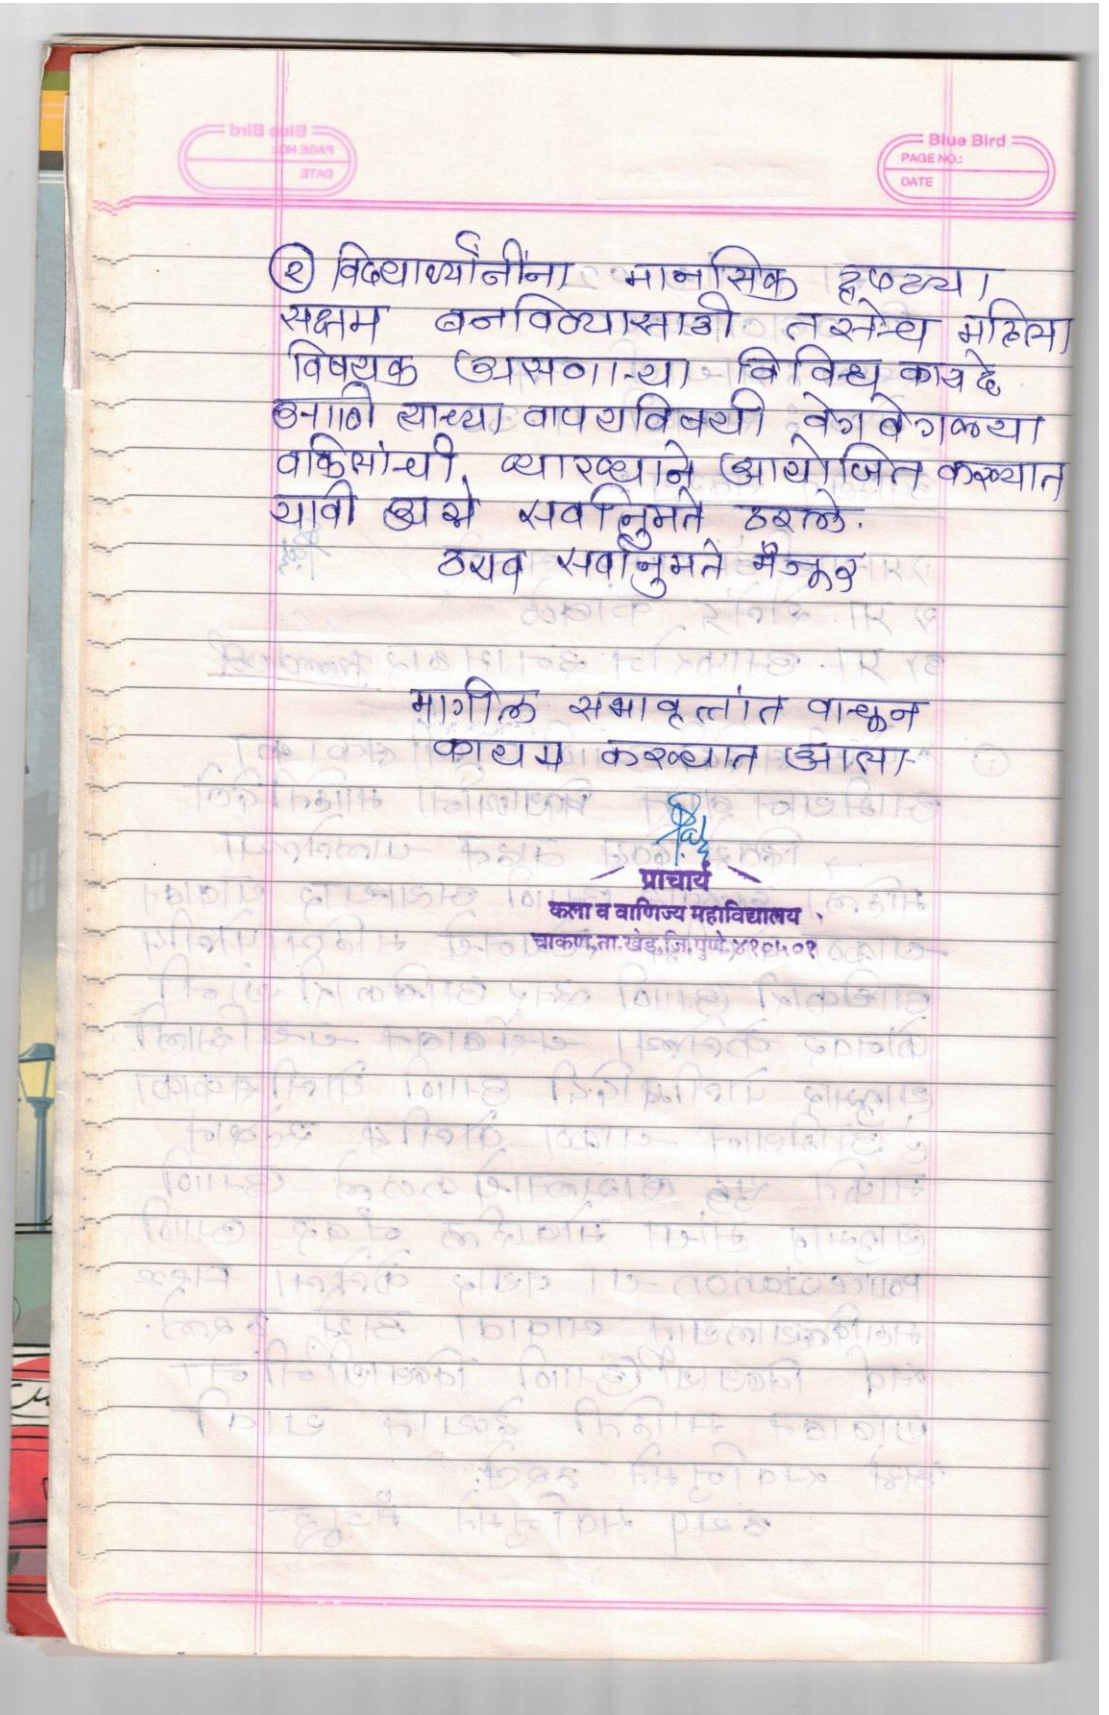 Blue Bird
PAGE NO.:
DATE
② विद्यार्थ्यांनींना मानसिक दृष्ट्या
सक्षम बनविण्यासाठी तसेच महिला
विषयक असणाऱ्या विविध कायदे
आणि त्याच्या वापराविषयी वेगवेगळ्या
वकिलांची व्याख्याने आयोजित करण्यात
यावी असे सर्वानुमते ठरले.
ठराव सर्वानुमते मंजूर
मागील सभावृत्तांत वाचून
कायम करण्यात आला
प्राचार्य
कला व वाणिज्य महाविद्यालय
चाकण, ता. खेड, जि. पुणे. ४१०५०१